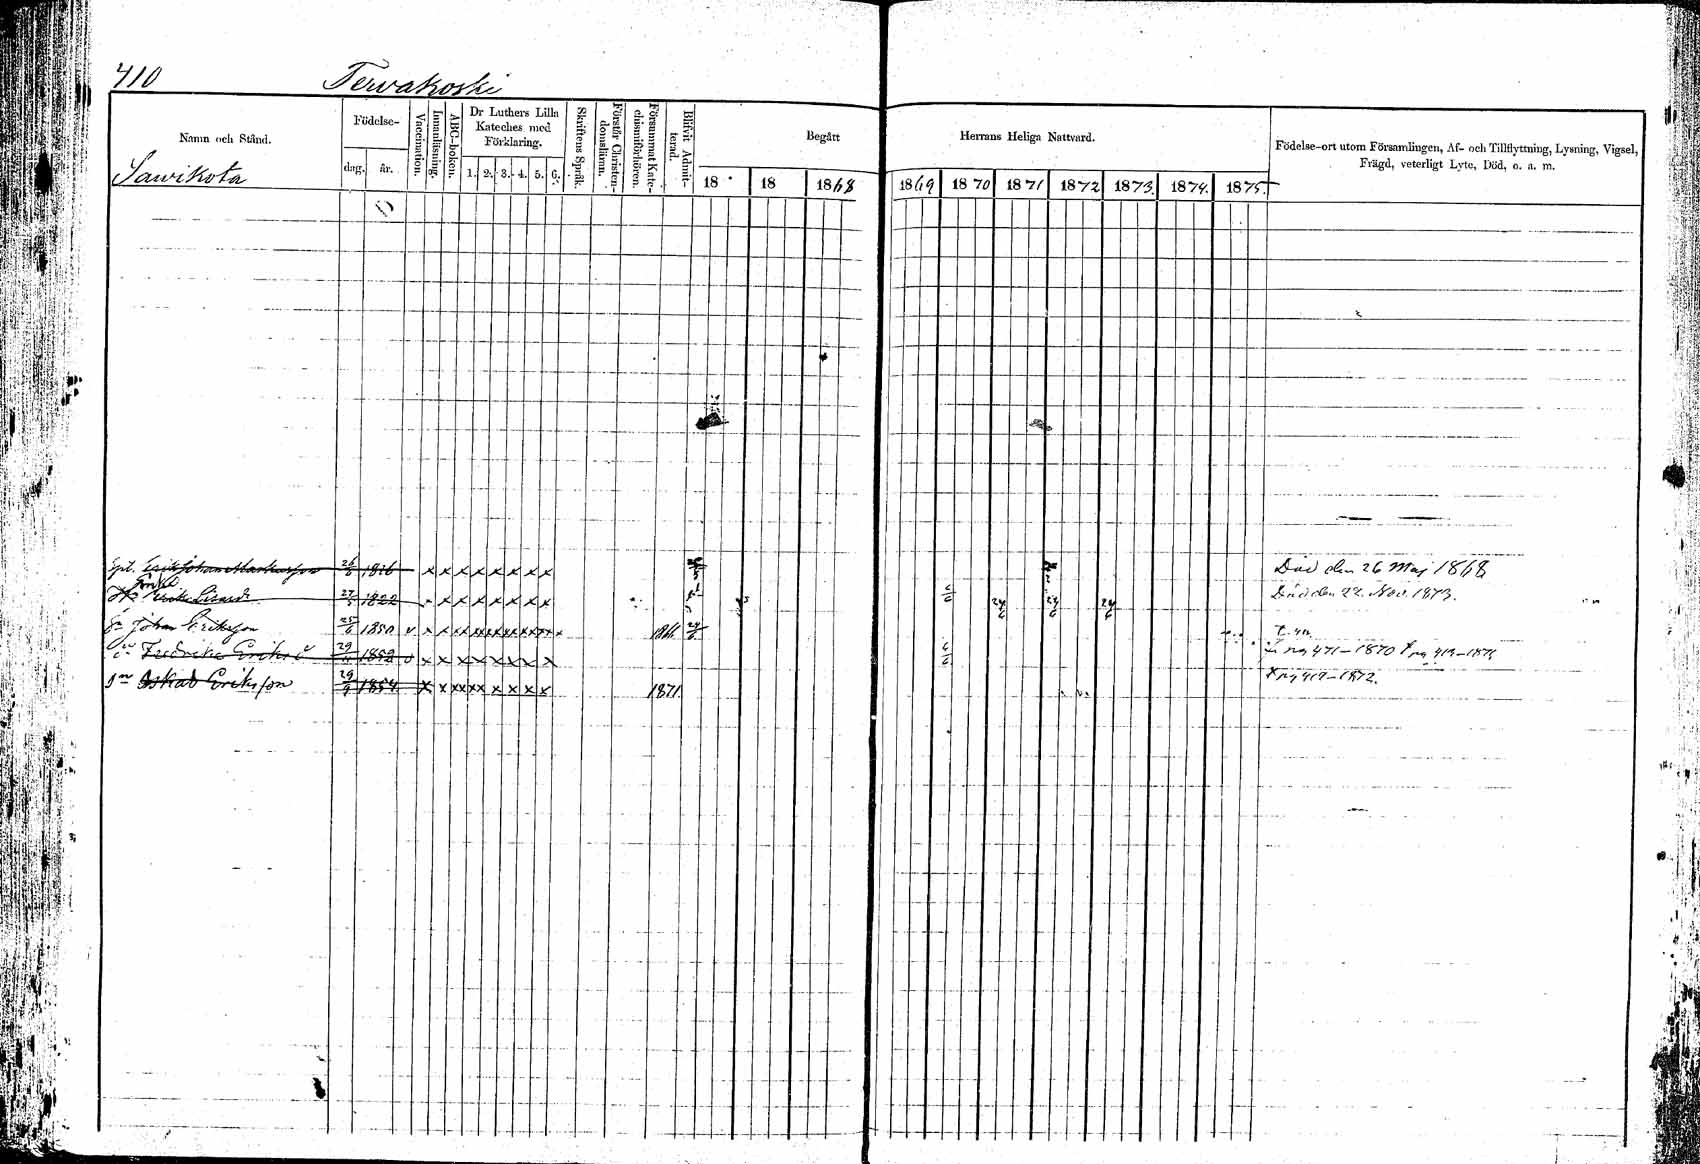 410 Tervakoski
Namn och Stånd.
Födelse-
dag. år.
Vaccination.
Innanläsning.
ABC-boken.
Dr Luthers Lilla Kateches med Förklaring.
1. 2. 3. 4. 5. 6.
Skriftens Språk.
Förstår Christendomsläran.
Försummat Katechismiförhören.
Blifvit Admitterad.
Begått Herrans Heliga Nattvard.
18 18 1868 1869 1870 1871 1872 1873. 1874. 1875.
Födelse-ort utom Församlingen, Af- och Tillflyttning, Lysning, Vigsel,
Frägd, veterligt Lyte, Död, o. a. m.
Sawikota
Erik Johan 26/6 1816 x x x x x x x x Död den 26 Maj 1868
Enka
27/5 1822 x x x x x x x 6/6 24/6 24/6 24/6 Död den 22 Nov. 1873.
Johan Eriksson 25/6 1850 v x x xx xx xx xx xx xx x 24/6
Fredrika Eriks d 29/11 1852 v x x x x x x x x 6/6 pag 471–1870
sn Oskar Eriksson 29/9 1854 x x xx xx x x x x 1871. pag 419–1872.